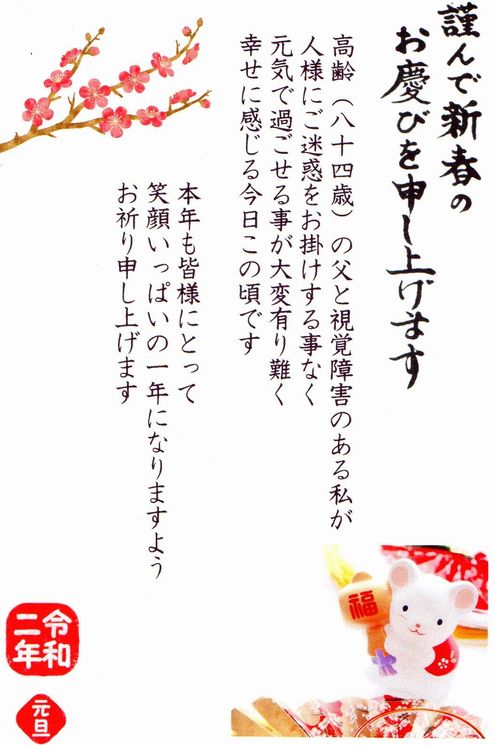 謹んで新春の
お慶びを申し上げます
高齢（八十四歳）の父と視覚障害のある私が
人様にご迷惑をお掛けする事なく
元気で過ごせる事が大変有り難く
幸せに感じる今日この頃です
本年も皆様にとって
笑顔いっぱいの一年になりますよう
お祈り申し上げます
福
令和
二年
元旦